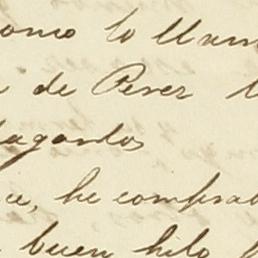 como lo llam
de Perez
pagarlos
he comprad
buen hilo